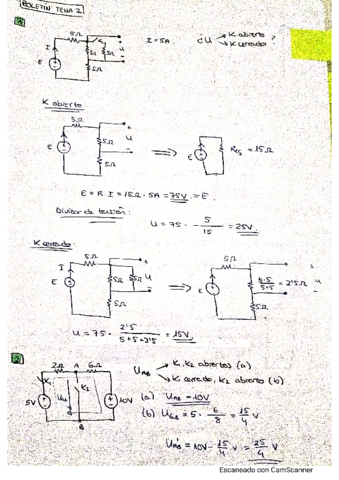 BOLETÍN TEMA 2
1
5Ω
I
K
I = 5A
¿U
K abierto
K cerrado
?
5Ω
5Ω
U
E
5Ω
K abierto
5Ω
I
+
5Ω
U
E
-
5Ω
=>
E
Req = 15Ω
E = R I = 15Ω · 5A = 75V = E.
Divisor de tensión:
U = 75 · 5/15 = 25V.
K cerrado:
5Ω
I
+
5Ω
5Ω
U
E
-
5Ω
=>
5Ω
+
5·5/5+5 = 2'5Ω
U
E
-
5Ω
U = 75 · 2'5/5+5+2'5 = 15V.
2
2Ω
A
6Ω
K1
K2
5V
10V
B
UAB
K1, K2 abiertos (a)
K1 cerrado, K2 abierto (b)
(a) UAB = 10V
(b) U6Ω = 5 · 6/8 = 15/4 V
UAB = 10V - 15/4 V = 25/4 V
Escaneado con CamScanner